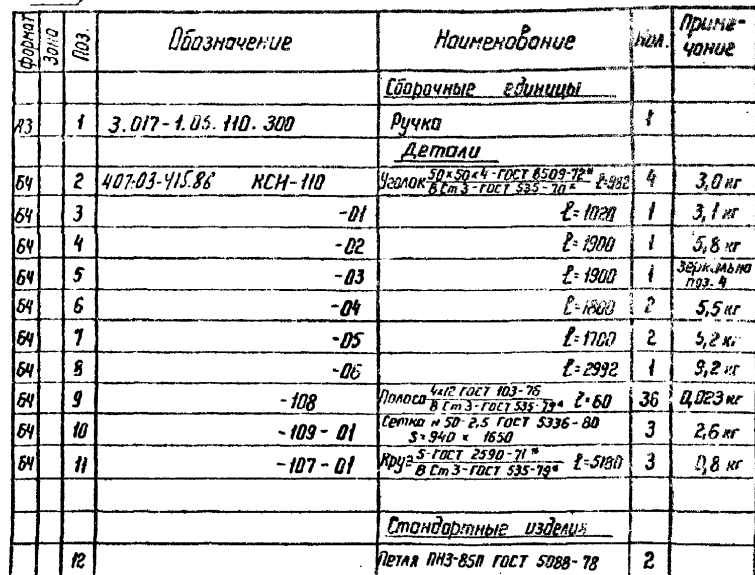 формат Зона Поз. Обозначение Наименование Кол. Приме-
чание
Сборочные единицы
А3 1 3.017-1.05.110.300 Ручка 1
Детали
БЧ 2 407-03-415.86 КСН-110 Уголок 50×50×4-ГОСТ 8509-72* / ВСт3-ГОСТ 535-70* ℓ=982 4 3,0 кг
БЧ 3 -01 ℓ=1020 1 3,1 кг
БЧ 4 -02 ℓ=1900 1 5,8 кг
БЧ 5 -03 ℓ=1900 1 зеркально
поз. 4
БЧ 6 -04 ℓ=1800 2 5,5 кг
БЧ 7 -05 ℓ=1700 2 5,2 кг
БЧ 8 -06 ℓ=2992 1 9,2 кг
БЧ 9 -108 Полоса 4×12 ГОСТ 103-76 / ВСт3-ГОСТ 535-79* ℓ=60 36 0,023 кг
БЧ 10 -109-01 Сетка № 50-2,5 ГОСТ 5336-80
S=940 × 1650 3 2,6 кг
БЧ 11 -107-01 Круг 5-ГОСТ 2590-71* / ВСт3-ГОСТ 535-79* ℓ=5180 3 0,8 кг
Стандартные изделия
12 Петля ПН3-85Л ГОСТ 5088-78 2